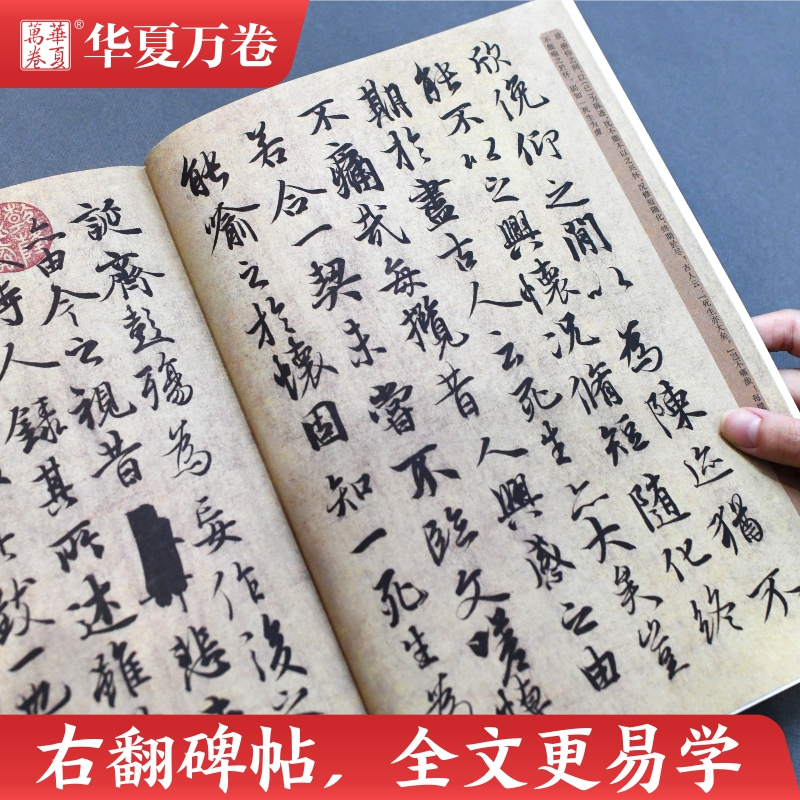 華夏
萬卷
®
华夏万卷
欣俛仰之閒以為陳迹猶不
能不以之興懷況脩短隨化終
期於盡古人云死生亦大矣豈
不痛哉每攬昔人興感之由
若合一契未嘗不臨文嗟悼
能喻之於懷固知一死生為
誕齊彭殤為妄作後之
亦由今之視昔悲
時人錄其所述雖
致一也
右翻碑帖，全文更易学